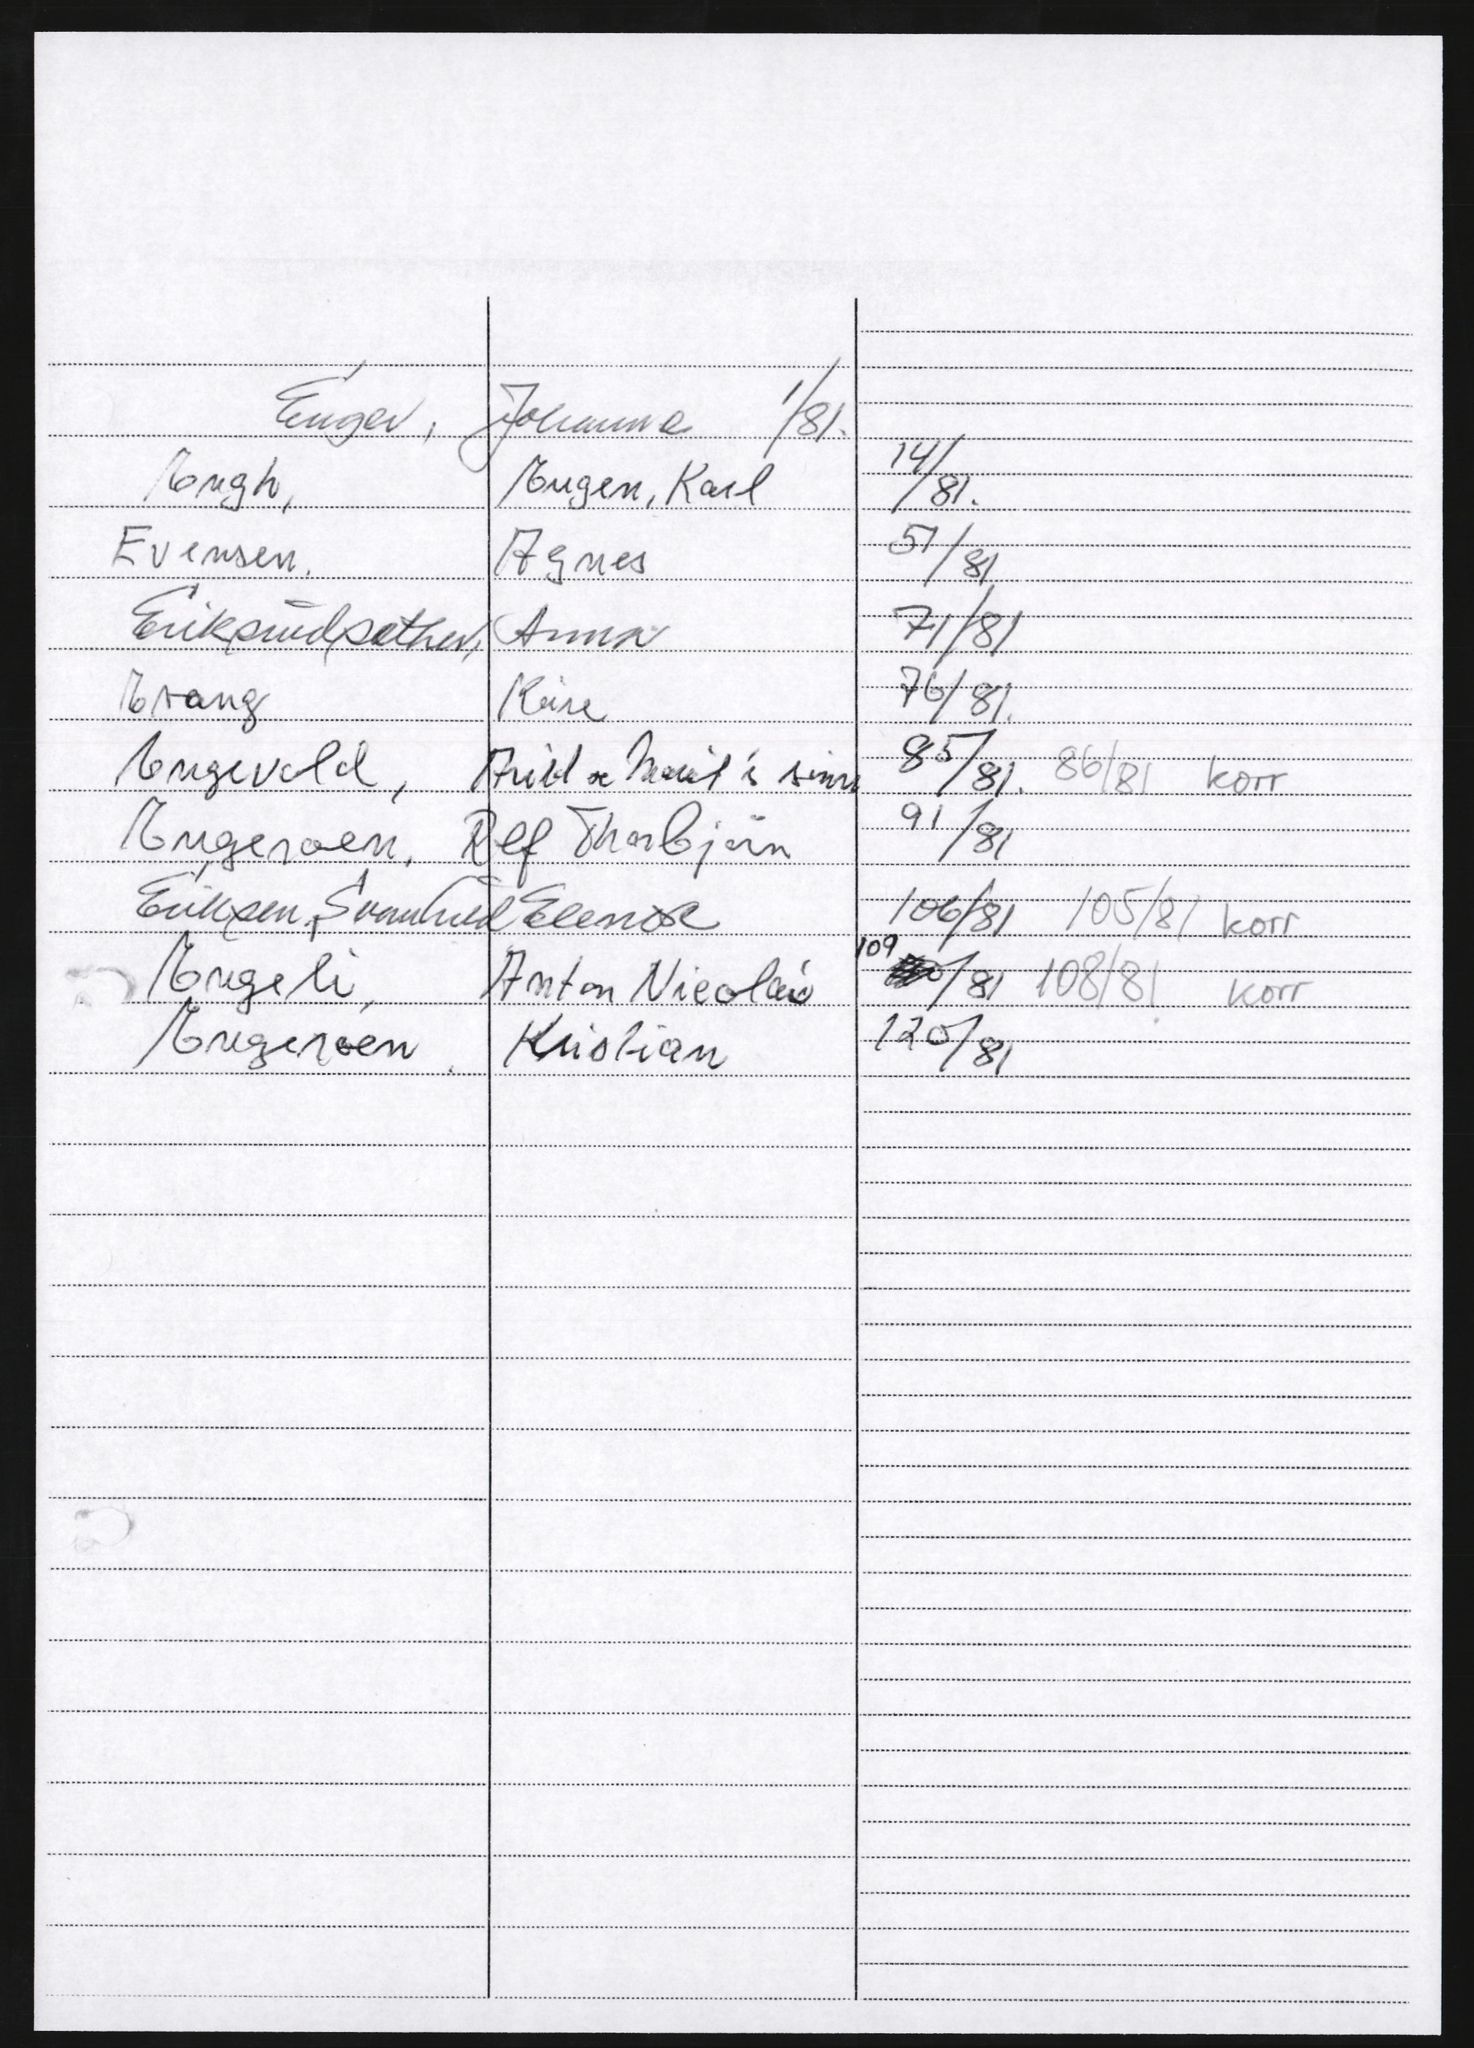 Enger, Johanna 1/81.
Engh, Eugen, Karl 14/81.
Evensen. Agnes 51/81
Eriksrudsæther, Anna 71/81
Evang Kåre 76/81.
Engevold, Arild & Marit's 85/81. 86/81 korr
Engeroen, Rolf Thorbjørn 91/81
Eriksen, Svanhild Elenore 106/81 105/81 korr
Engeli, Anton Nicolai 109/81 108/81 korr
Engeroen. Kristian 120/81